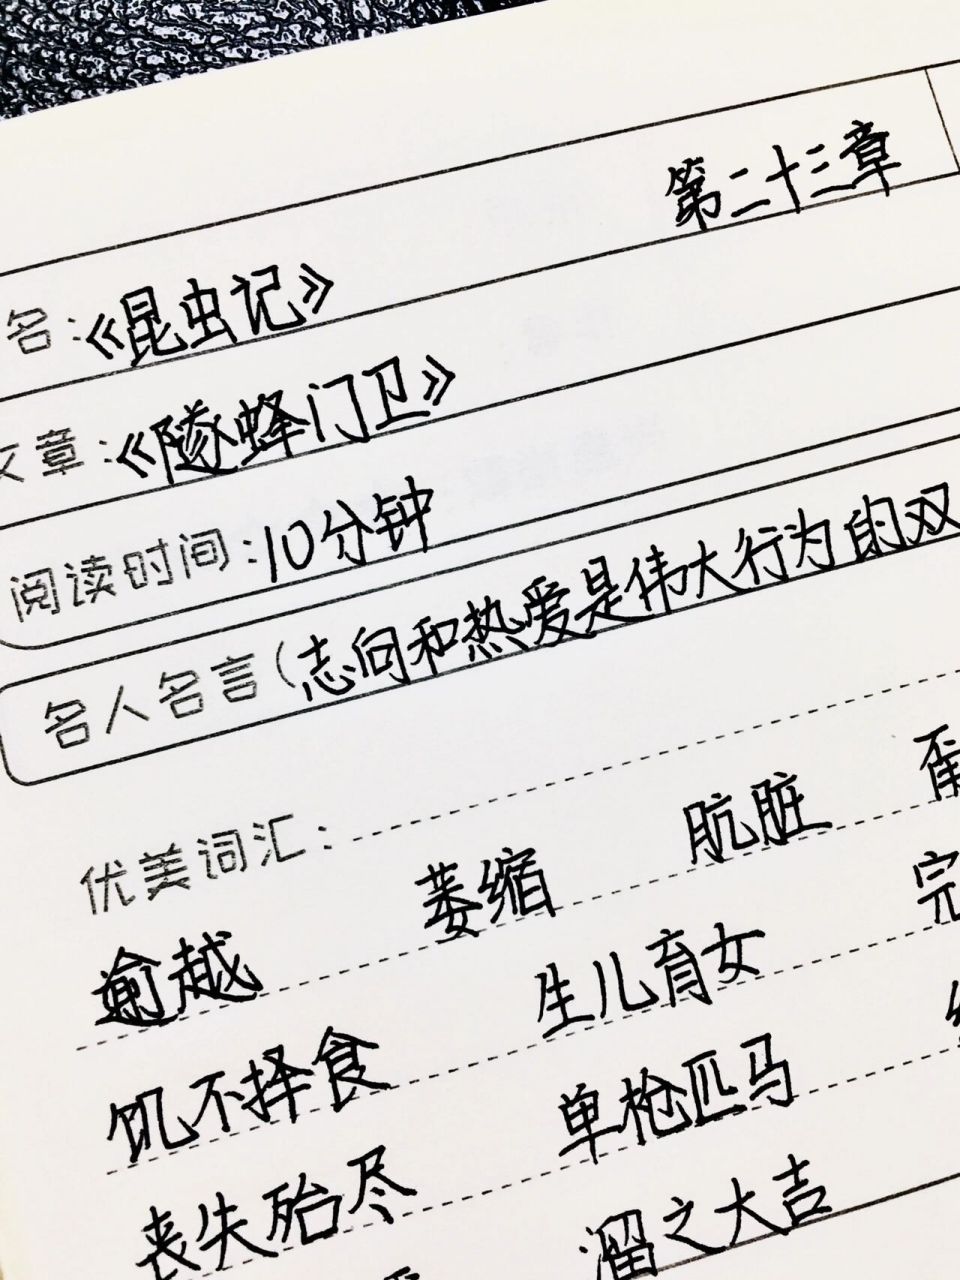 第二十三章
名:《昆虫记》
文章:《隧蜂门卫》
阅读时间:10分钟
名人名言(志向和热爱是伟大行为的双
优美词汇:
逾越 萎缩 肮脏
饥不择食 生儿育女 完
丧失殆尽 单枪匹马
溜之大吉